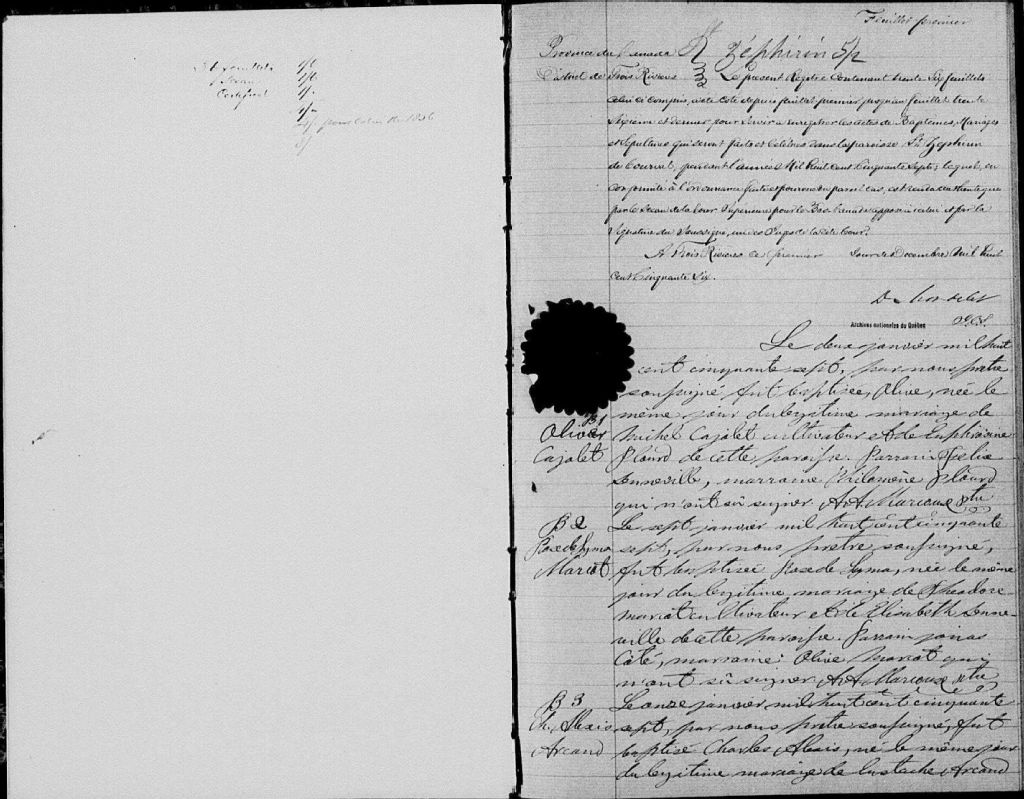 36 feuillets
Sceau
Certificat
pour celui de 1856
Feuillet premier
Province du Canada St Zéphirin 57
District de Trois Rivieres Le present Registre Contenant trente Six feuillets
celui ci compris, a été coté depuis feuillet premier jusqu'au feuillet trente
Sixieme et dernier pour servir à enregistrer les actes de Baptemes, Mariages
et Sepultures qui seront faits et célébrés dans la paroisse St Zephirin
de Courval, pendant l'année Mil huit cent Cinquante Sept; lequel, en
conformité à l'ordonnance faite et pourvue en pareil cas, est rendu authentique
par le Sceau de la Cour Superieure pour le Bas Canada apposé à celui et par la
Signature du Soussigné, un des Juges de la dite Cour.
A Trois Rivieres ce premier Jour de Decembre Mil huit
cent Cinquante Six.
D. Mondelet
Archives nationales du Québec
J.C.S.
Le deux janvier mil huit
cent cinquante sept, par nous pretre
soussigné fut baptisée, Olive, née le
même jour du légitime mariage de
B 1
Olivier
Cajolet
Michel Cajolet cultivateur et de Euphrosine
Plourd de cette paroisse. Parrain
Senneville, marraine Philomène Plourd
qui n'ont sû signer. A A Marcoux Ptre
B 2
Rose de Lyma
Marcot
Le sept janvier mil huit cent cinquante
sept, par nous pretre soussigné,
fut baptisée Rose de Lyma, née le même
jour du legitime mariage de Theodore
Marcot cultivateur et de Elisabeth Senne-
ville de cette paroisse. Parrain jonas
Côté, marraine Olive Marcot qui
n'ont sû signer. A A Marcoux Ptre
B 3
Ch. Alexis
Arcand
Le onze janvier mil huit cent cinquante
sept, par nous pretre soussigné, fut
baptisé Charles Alexis, né le même jour
du legitime mariage de Eustache Arcand